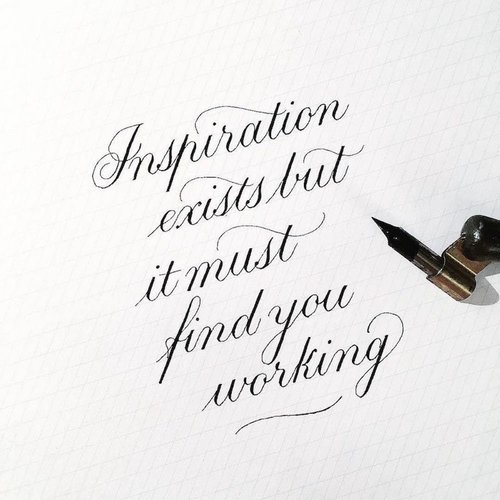 Inspiration
exists but
it must
find you
working